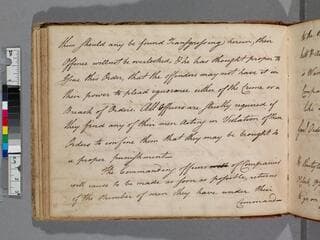 them should any be found Transgressing herein, their
Offence will not be overlooked, & he has thought proper to
Give this Order, that the offenders may not have it in
their power to plead ignorance either of the Crime or a
Breach of Orders. All Officers are strictly required if
they find any of their men Acting in Violation of these
Orders to confine them that they may be brought to
a proper punishment
The Commanding officers of Companies
will cause to be made as soon as possible, returns
of the Number of men they have under their
Command